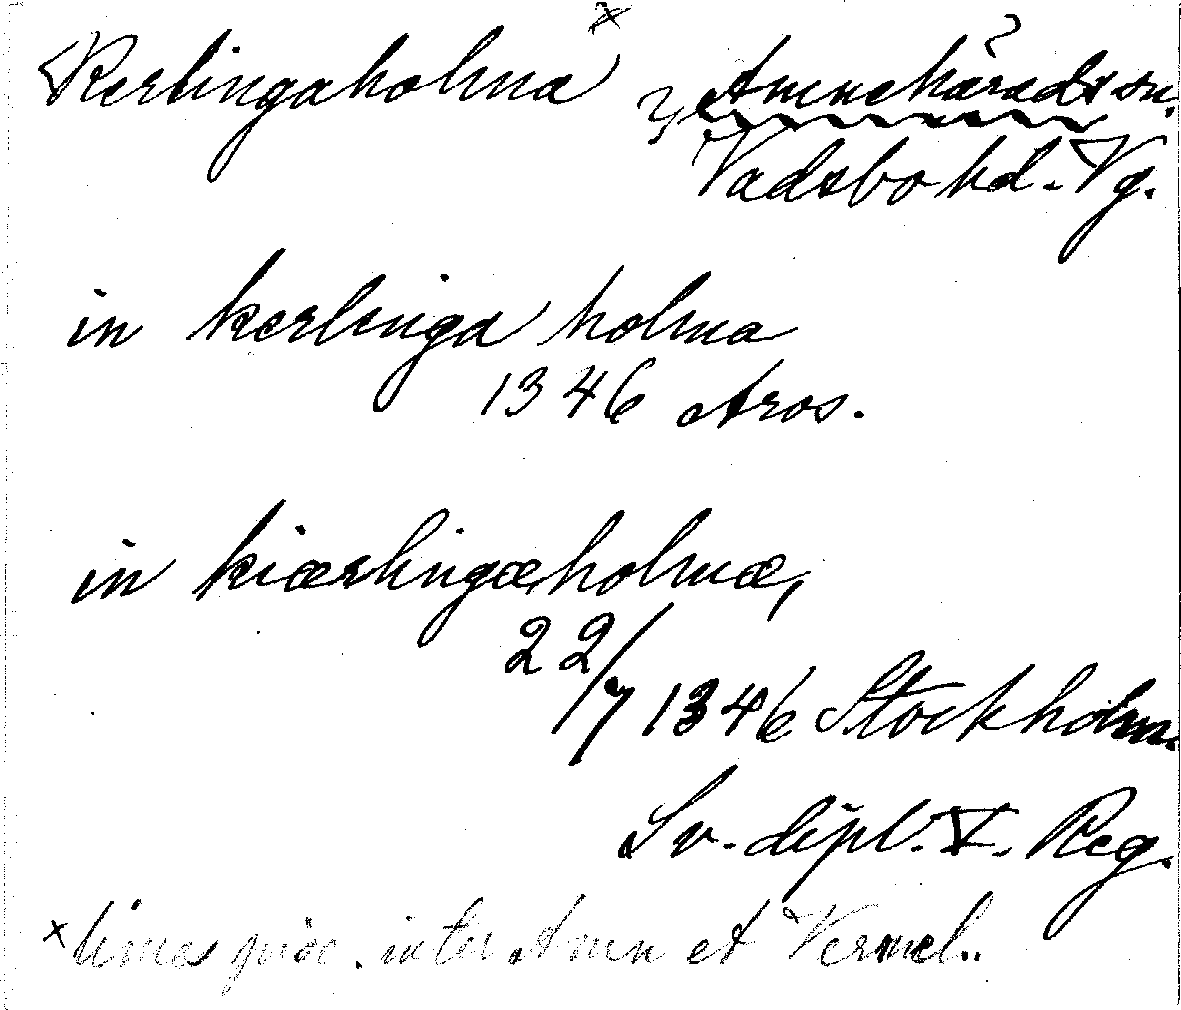 Kerlingaholma x ? Amnehärads sn.
Vadsbo hd. Vg.
in kerlinga holma
1346 Aros.
in kiærlingæholmæ,
22/7 1346 Stockholm.
Sv. dipl. V. Reg.
x limes pisc. inter Amn et Vermel..